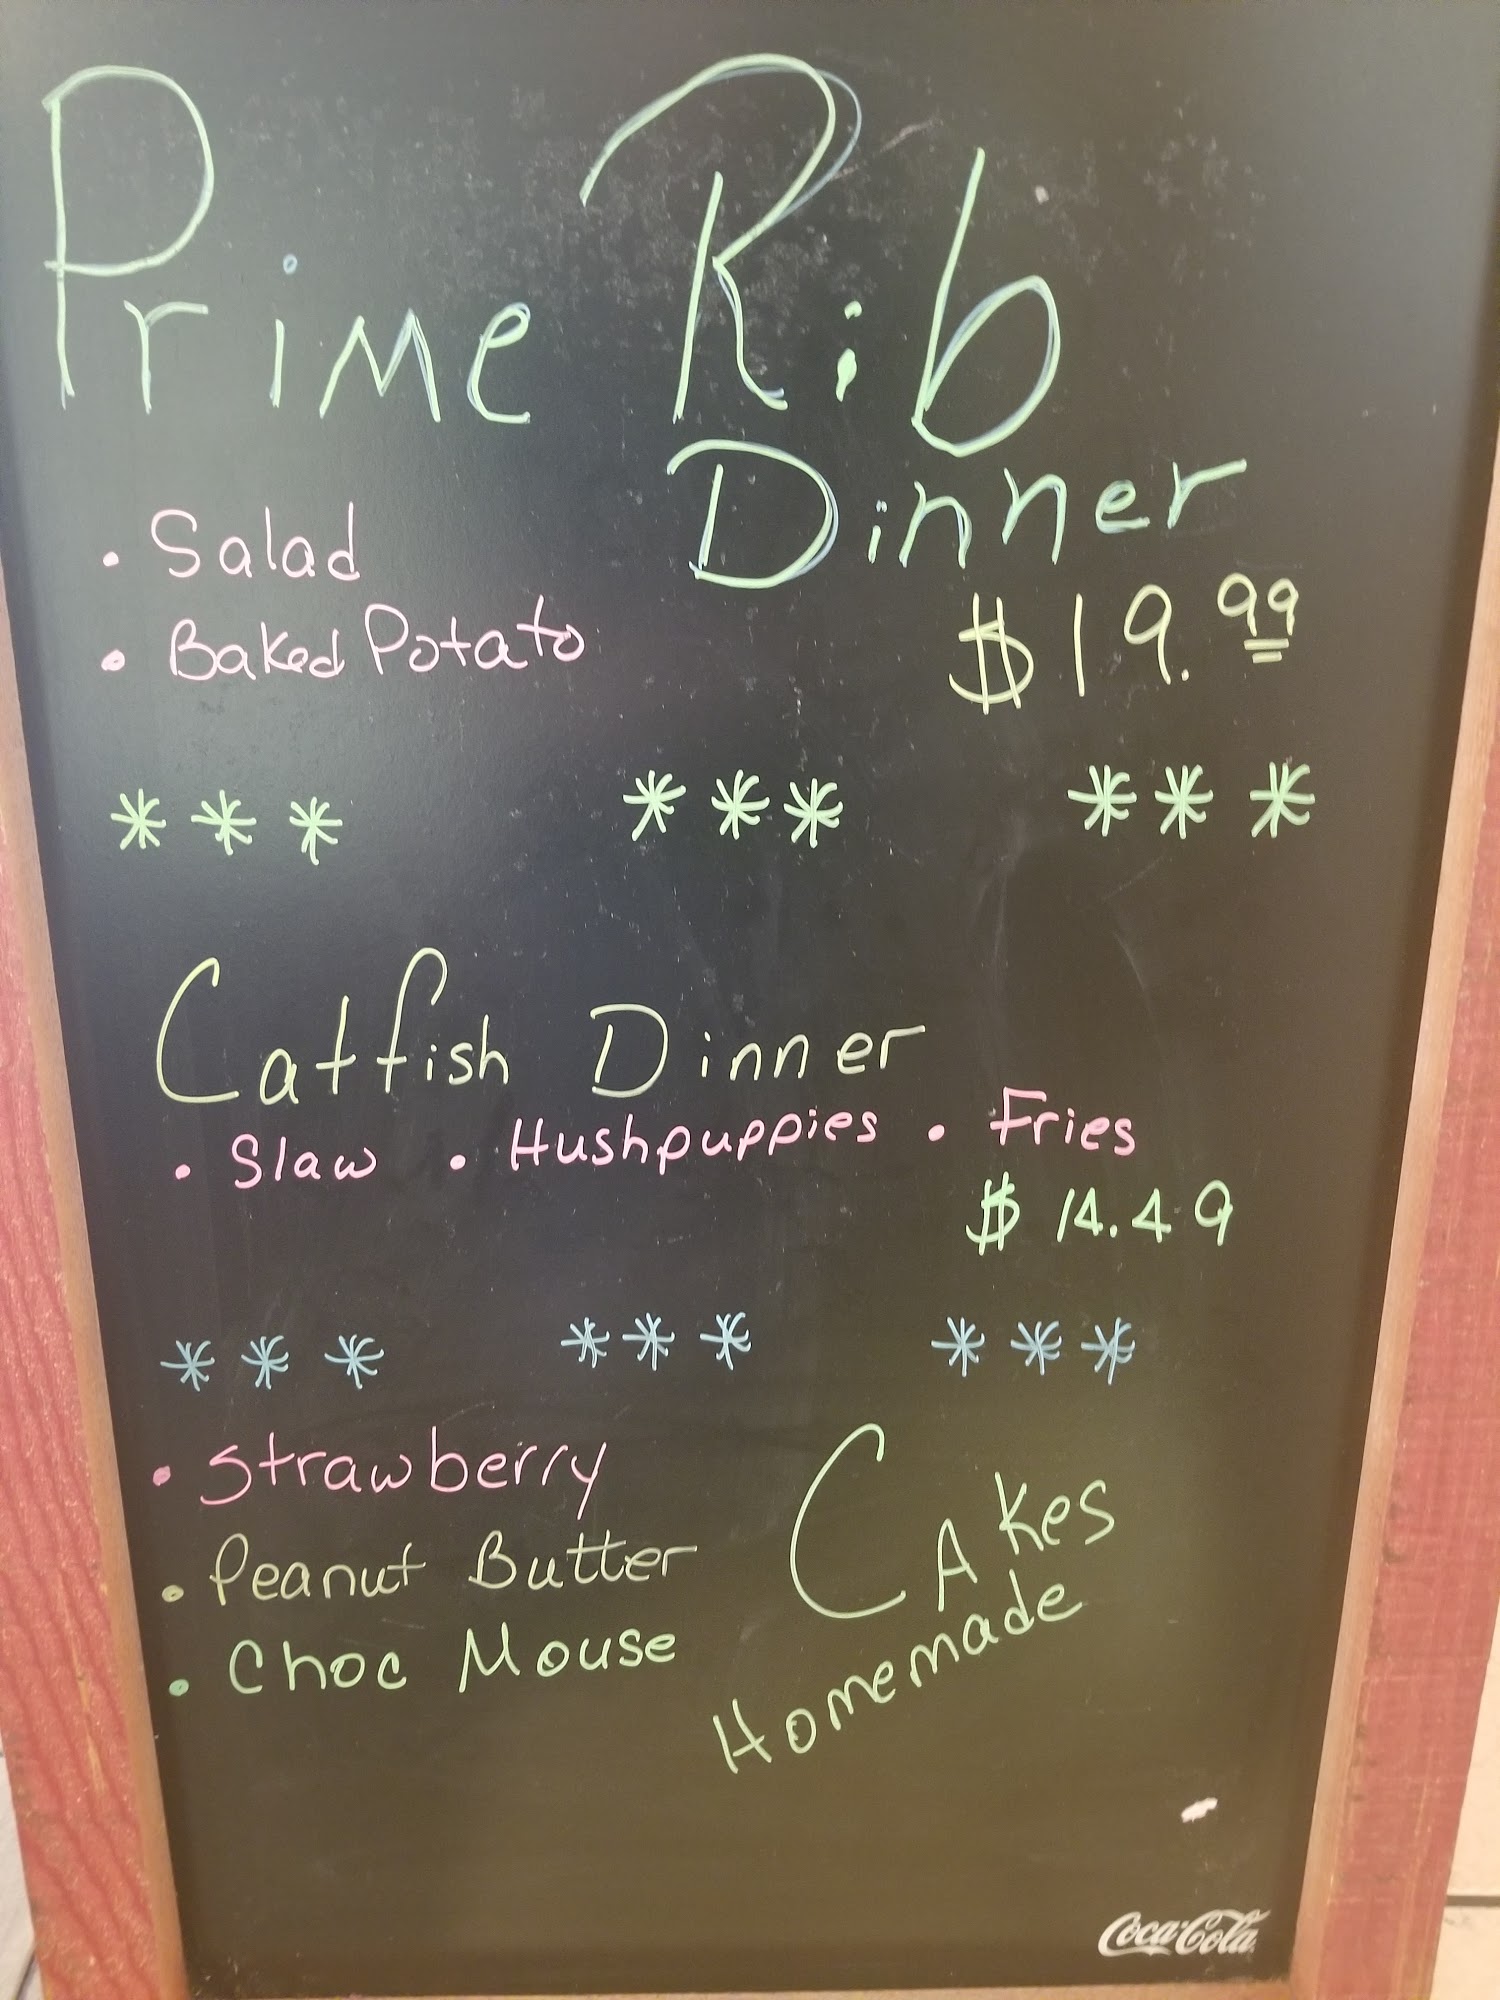 Prime Rib
Dinner
• Salad
• Baked Potato
$19.99
* * * * * * * * *
Catfish Dinner
• Slaw • Hushpuppies • Fries
$14.49
* * * * * * * * *
• Strawberry
• Peanut Butter
• Choc Mouse
Cakes
Homemade
Coca-Cola